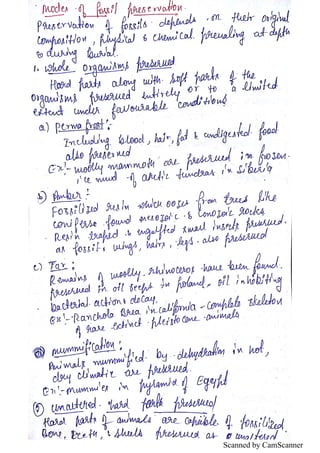 Modes of fossil preservation
Preservation of fossils depends on their original
composition, physical & chemical prevaling at depth
& during burial.
1. whole organisms preserved
Hard parts along with soft parts of the
organisms preserved entirely or to a limited
extent under favourable conditions
a) Perma frost:
Including blood, hair, fat & undigested food
also preserved
Ex:- woolly mammoth are preserved in frozen
ice mud of arctic tundras in Siberia
b) Amber:
Fossilized resin which oozes from trees like
coniferse found mesozoic & cenozoic rocks
- Resin traped & engulfed small insects preserved
as fossils, wings, hairs, legs also preserved
c) Tar:
Remains of woolly rhinoceros have been found
preserved in oil seeps in poland, oil inhibiting
bacterial actions decay.
Ex:- Ranchola Brea in california - complete skeleton
of rare extinct pleistocene animals
mummification:
Animals mummified by dehydration in hot,
dry climatic are preserved.
Ex:- mummies in pyramid of Egypt
unaltered hard parts preserved
Hard parts of animals are capable of fossilized
Bone, teeth, & shells preserved as
Scanned by CamScanner